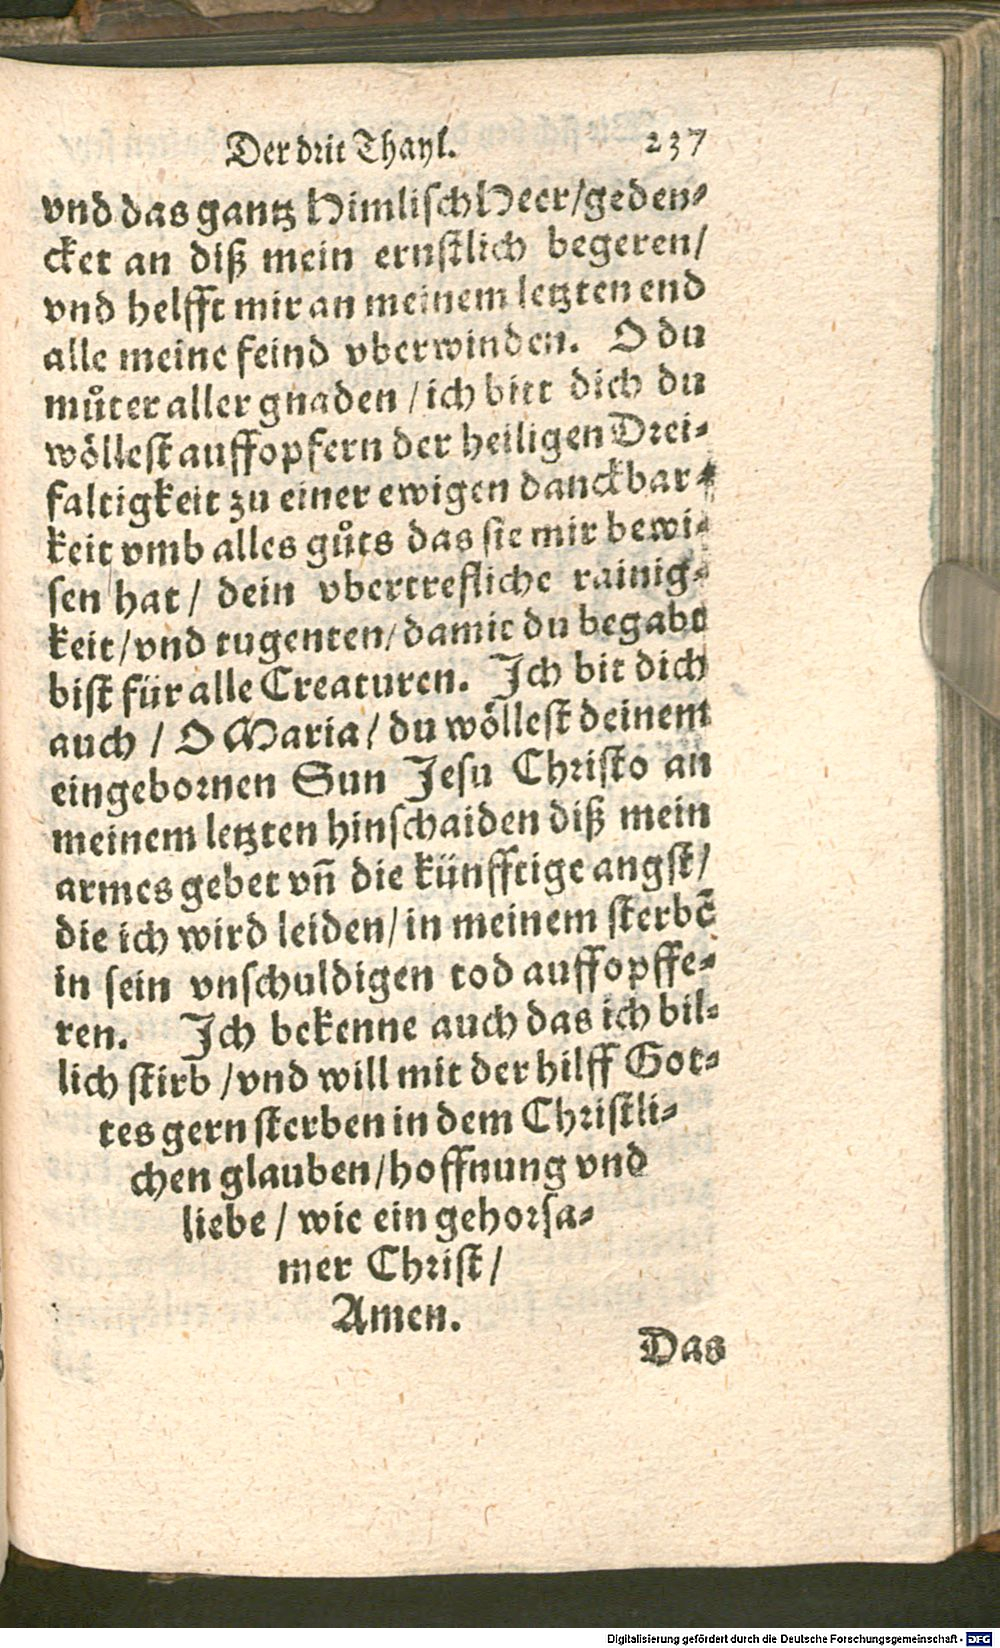 Der drit Thayl. 237
vnd das gantz Himlisch Heer/geden⸗
cket an diß mein ernstlich begeren/
vnd helfft mir an meinem letzten end
alle meine feind vberwinden. O du
muͦter aller gnaden / ich bitt dich du
wöllest auffopfern der heiligen Drei⸗
faltigkeit zu einer ewigen danckbar⸗
keit vmb alles guͦts das sie mir bewi⸗
sen hat / dein vbertrefliche rainig⸗
keit/vnd tugenten/damit du begabt
bist für alle Creaturen. Ich bit dich
auch / O Maria / du wöllest deinem
eingebornen Sun Jesu Christo an
meinem letzten hinschaiden diß mein
armes gebet vñ die künfftige angst/
die ich wird leiden/in meinem sterbē
in sein vnschuldigen tod auffopffe⸗
ren. Ich bekenne auch das ich bil⸗
lich stirb /vnd will mit der hilff Got⸗
tes gern sterben in dem Christli⸗
chen glauben/hoffnung vnd
liebe / wie ein gehorsa⸗
mer Christ/
Amen.
Das
Digitalisierung gefördert durch die Deutsche Forschungsgemeinschaft - DFG